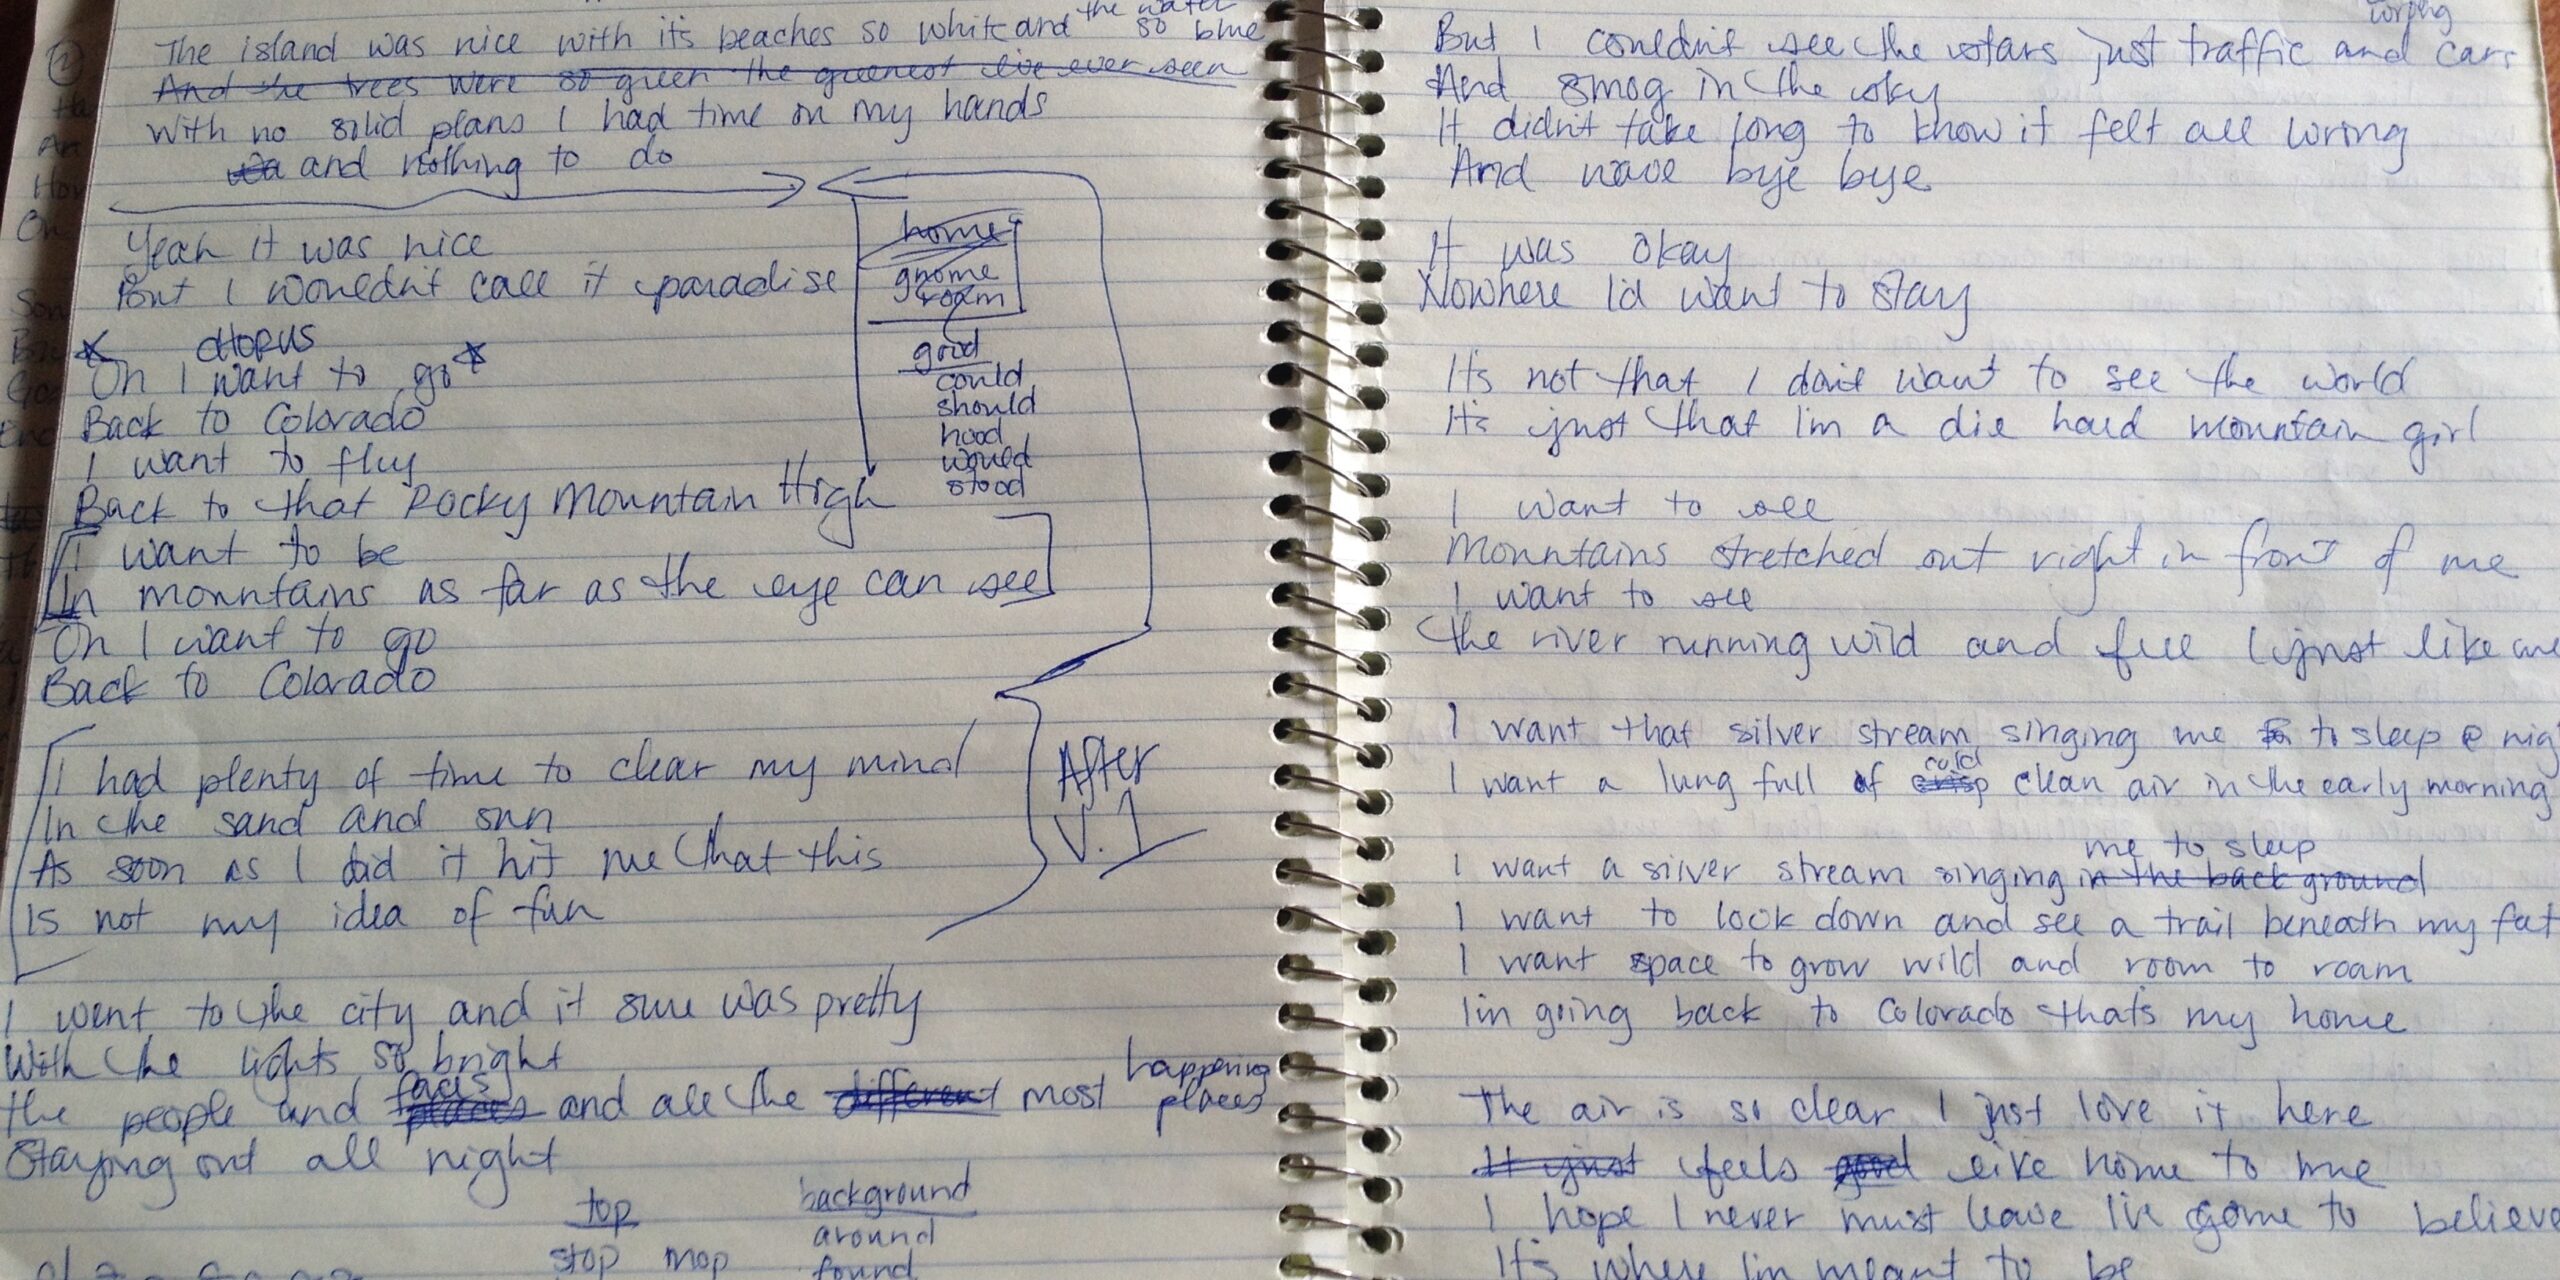 ②
The island was nice with its beaches so white and the water so blue
And the trees were so green the greenest i've ever seen
With no solid plans I had time on my hands
and nothing to do
Yeah it was nice
But I wouldn't call it paradise
home
gnome
roam
good
could
should
hood
would
stood
CHORUS
Oh I want to go
Back to Colorado
I want to fly
Back to that Rocky Mountain High
I want to be
In mountains as far as the eye can see
Oh I want to go
Back to Colorado
I had plenty of time to clear my mind
In the sand and sun
As soon as I did it hit me that this
Is not my idea of fun
After
V.1
I went to the city and it sure was pretty
With the lights so bright
the people and places faces and all the different most happening places
Staying out all night
top
stop mop
background
around
found
But I couldn't see the stars just traffic and cars
And smog in the sky
It didn't take long to know it felt all wrong
And wave bye bye
It was okay
Nowhere I'd want to stay
It's not that I don't want to see the world
It's just that I'm a die hard mountain girl
I want to see
Mountains stretched out right in front of me
I want to see
the river running wild and free (just like me
I want that silver stream singing me to sleep @ nig
I want a lung full of crisp cold clean air in the early morning
I want a silver stream singing in the back ground me to sleep
I want to look down and see a trail beneath my feet
I want space to grow wild and room to roam
I'm going back to Colorado that's my home
The air is so clear I just love it here
It just feels good like home to me
I hope I never must leave I've come to believe
It's where I'm meant to be